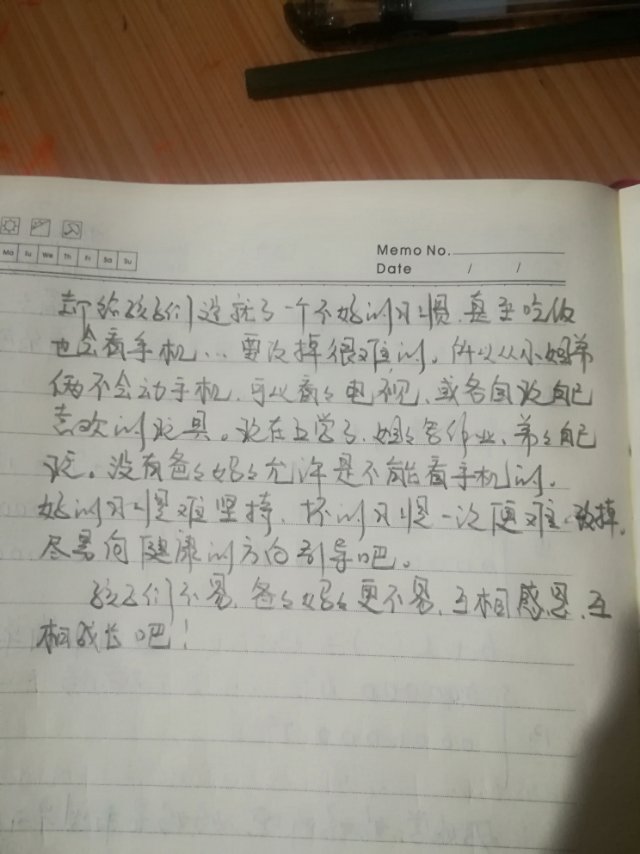 Mo Tu We Th Fr Sa Su
Memo No.
Date / /
都给孩子们造就了一个不好的习惯,甚至吃饭
也会看手机…要改掉很难的。所以从小姐弟
俩不会动手机,可以看看电视,或各自玩自己
喜欢的玩具。现在上学了,姐姐写作业,弟弟自己
玩。没有爸爸妈妈允许是不能看手机的。
好的习惯难坚持,坏的习惯一次更难改掉。
尽量向健康的方向引导吧。
孩子们不易,爸爸妈妈更不易,互相感恩,互
相成长吧!